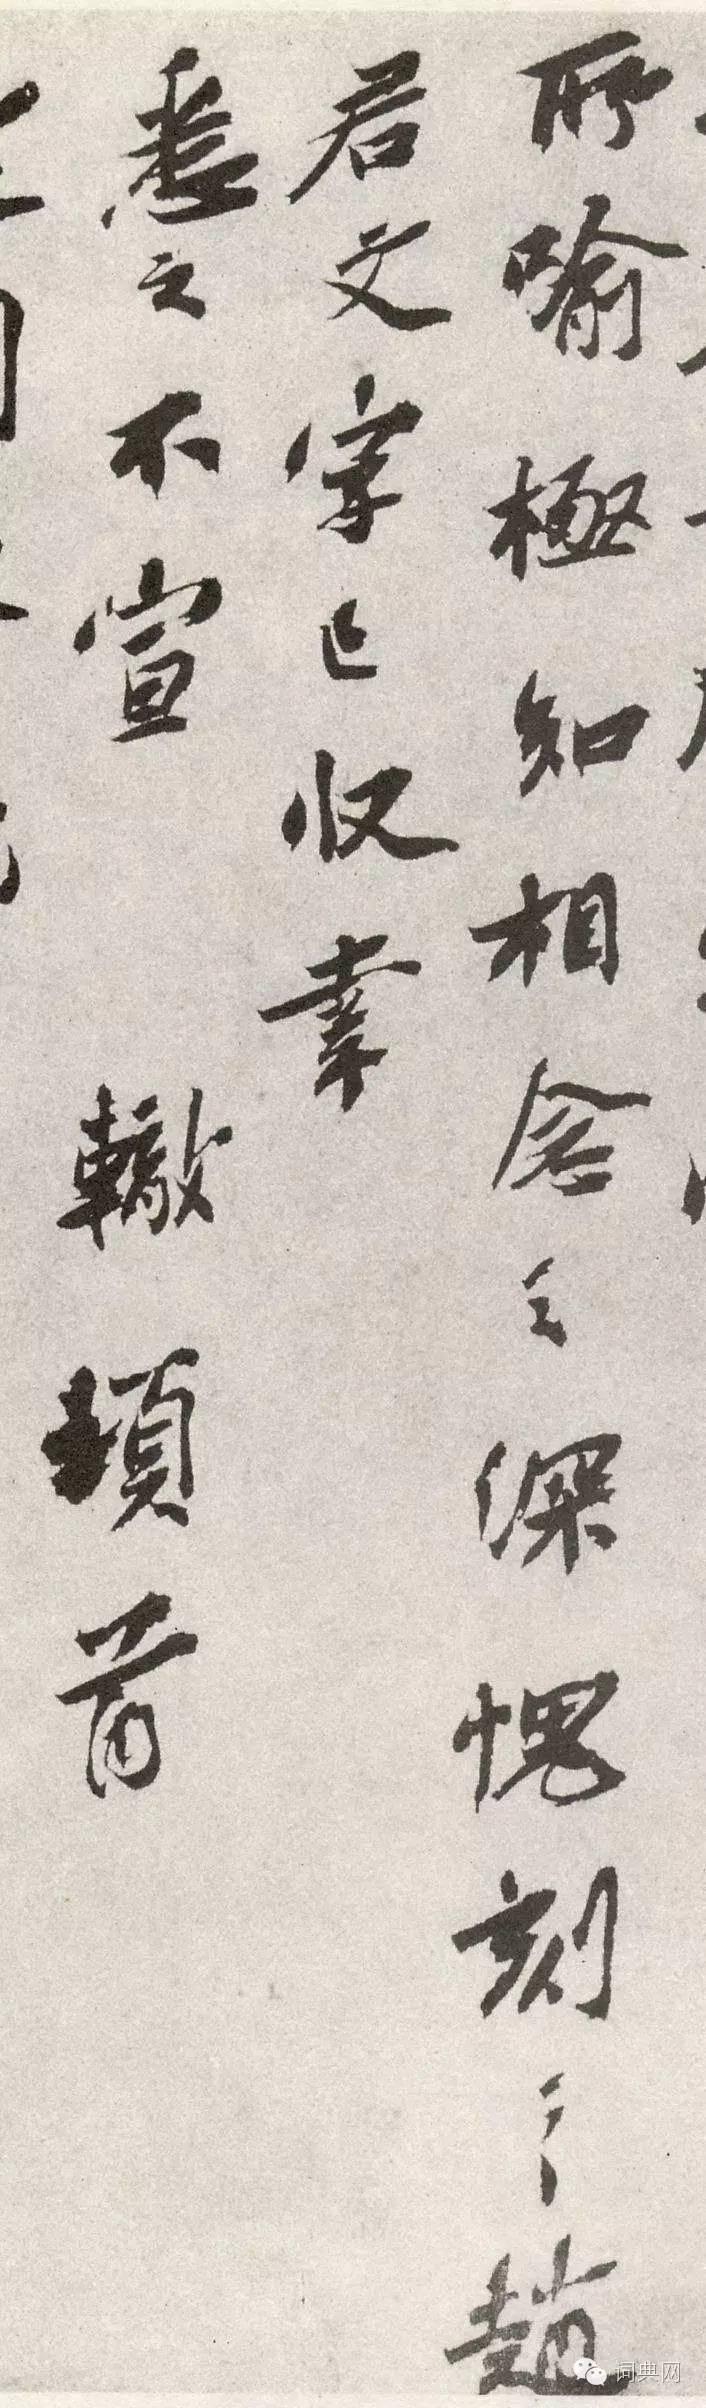 所喻極知相念之深愧刻〻趙
君文字已收幸
悉之不宣 轍頓首
词典网